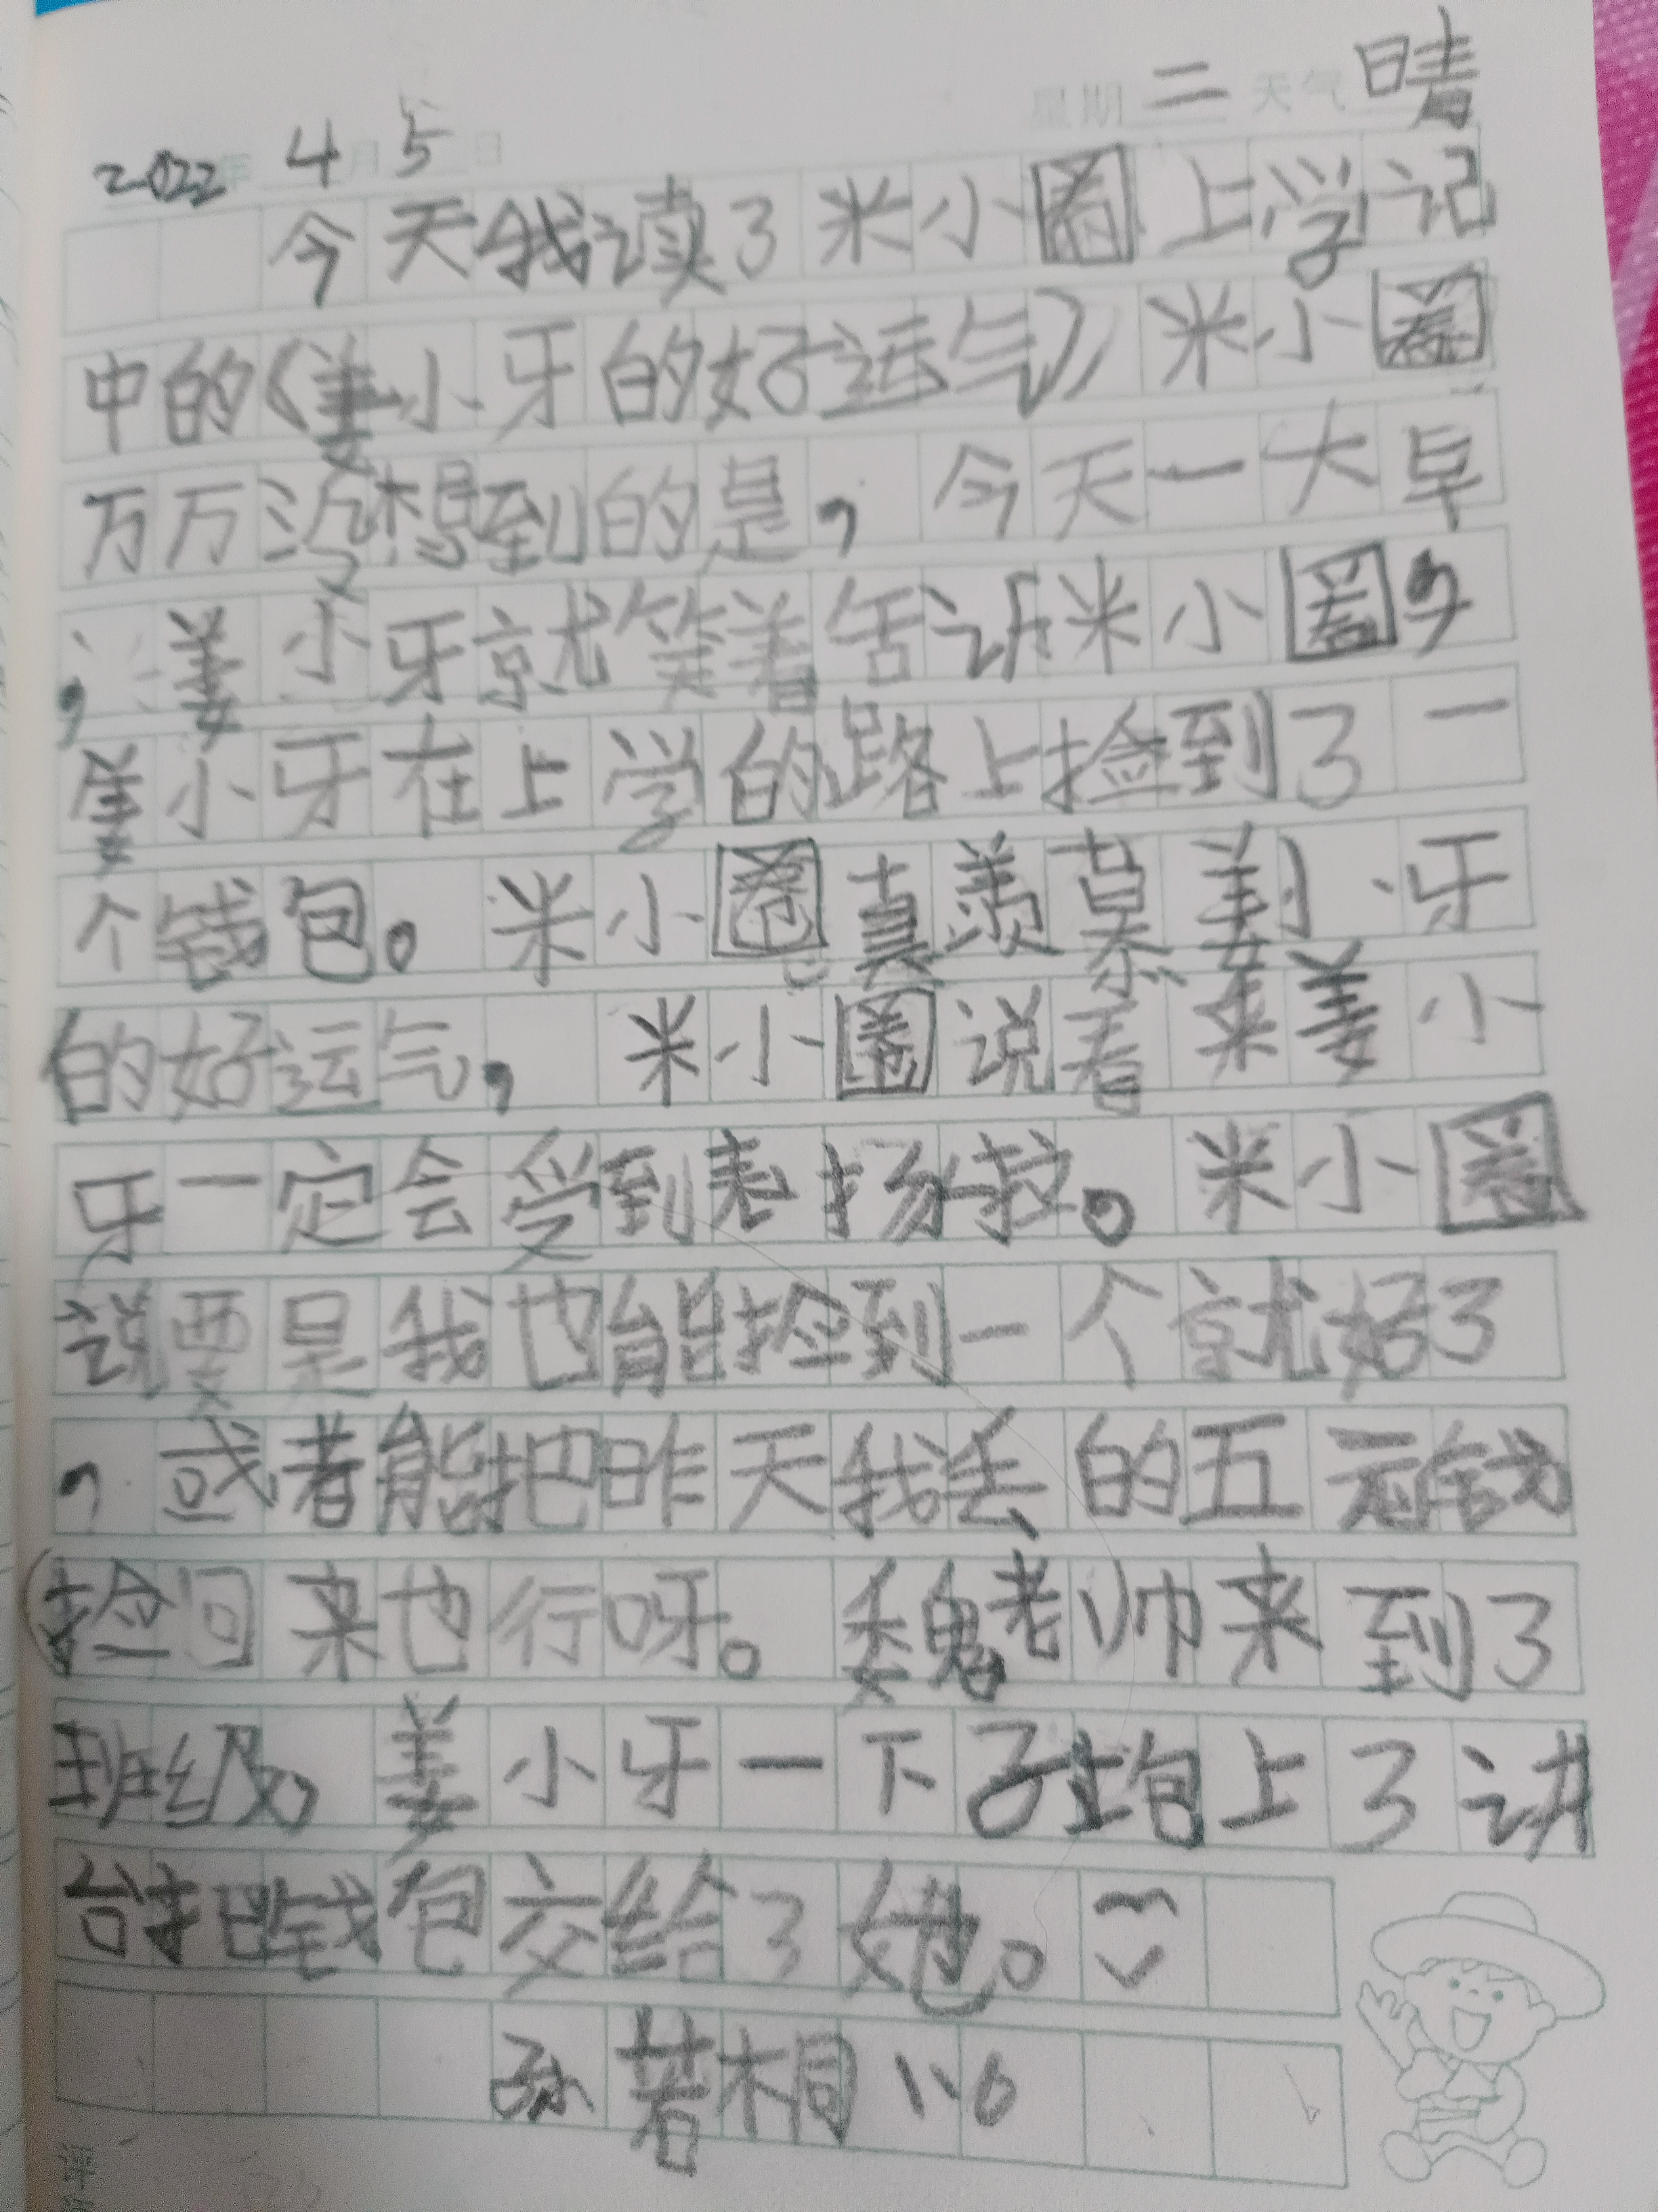 星期二 天气 晴
2022年4月5日
今天我读了米小圈上学记
中的《姜小牙的好运气》米小圈
万万没想到的是，今天一大早
，姜小牙就笑着告诉米小圈，
姜小牙在上学的路上捡到了一
个钱包。米小圈真羡慕姜小牙
的好运气，米小圈说看来姜小
牙一定会受到表扬啦。米小圈
说要是我也能捡到一个就好了
，或者能把昨天我丢的五元钱
捡回来也行呀。魏老师来到了
班级，姜小牙一下子跑上了讲
台把钱包交给了她。
孙若桐 1.6
评